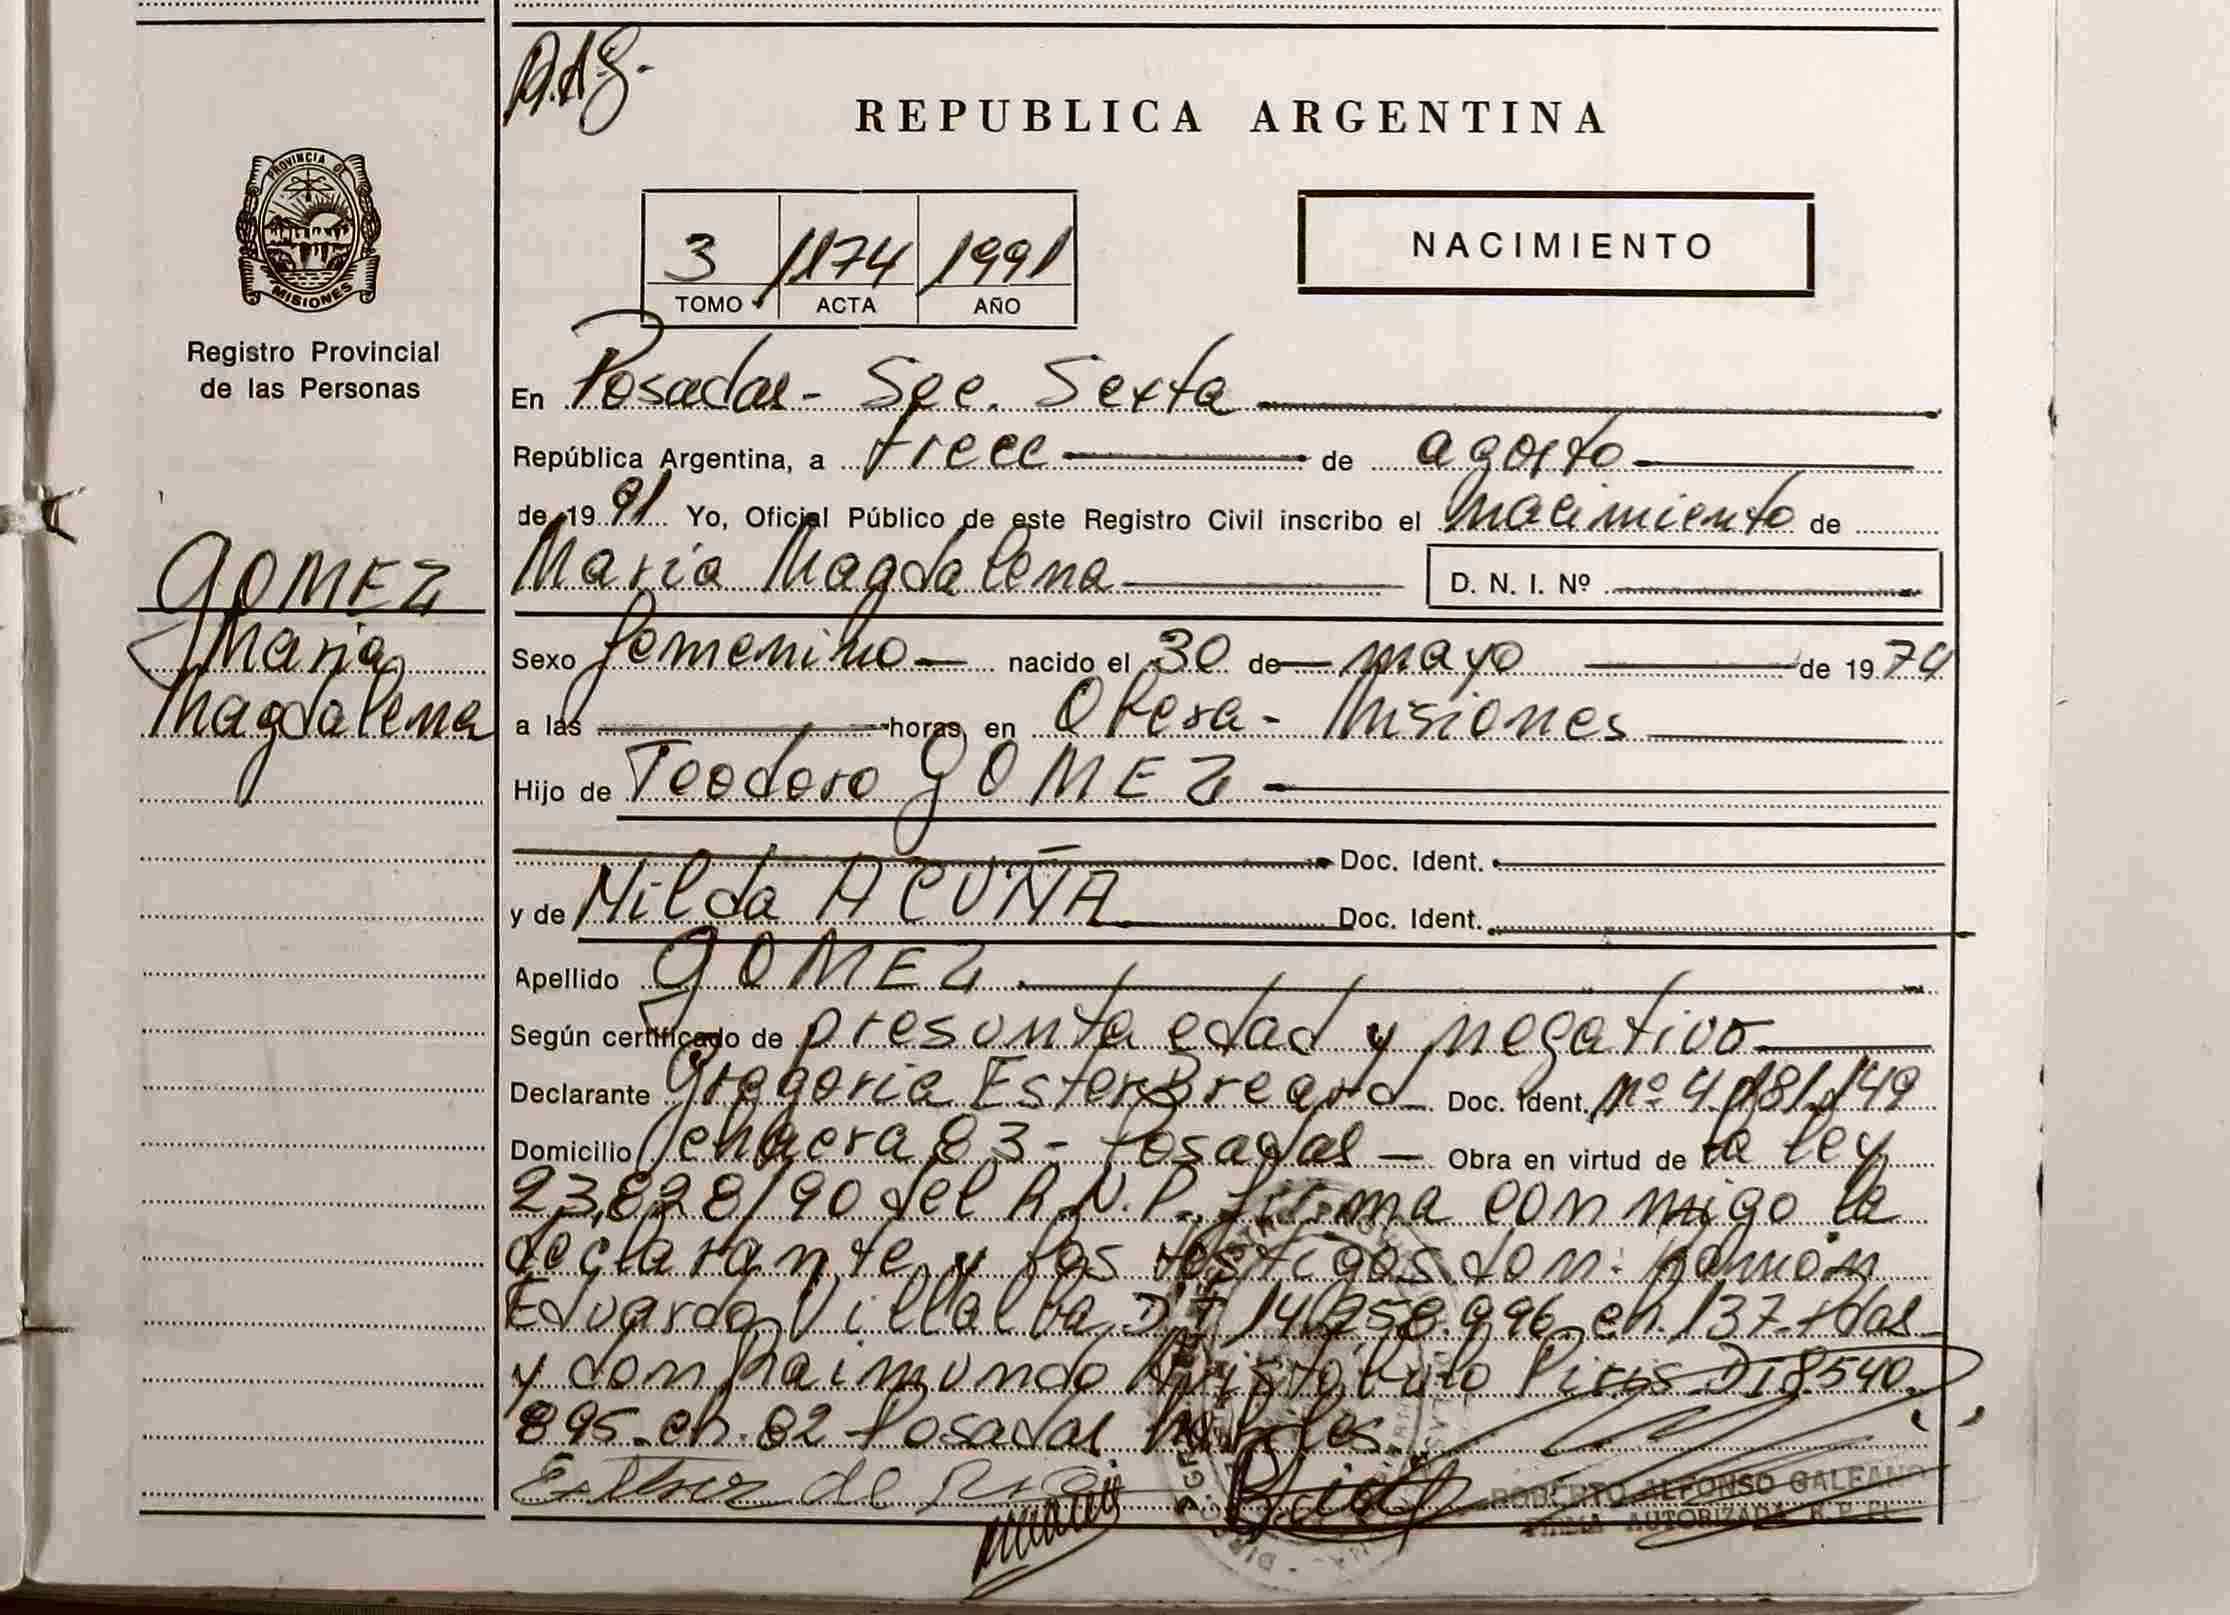 D.A.G.
REPUBLICA ARGENTINA
PROVINCIA DE
MISIONES
Registro Provincial
de las Personas
3 1174 1991
TOMO ACTA AÑO
NACIMIENTO
En Posadas - Sec. Sexta
República Argentina, a trece de agosto
de 1991 Yo, Oficial Público de este Registro Civil inscribo el nacimiento de
Maria Magdalena D. N. I. Nº
GOMEZ
Maria
Magdalena
Sexo femenino nacido el 30 de mayo de 1974
a las horas en Obera - Misiones
Hijo de Teodoro GOMEZ
Doc. Ident.
y de Nilda ACUÑA Doc. Ident.
Apellido GOMEZ
Según certificado de presunta edad y negativo
Declarante Gregoria Ester Breard Doc. Ident. Nº 4.181.149
Domicilio 83 - Posadas Obra en virtud de la ley
23.828/90 del R.N.P. firma conmigo la
declarante y los testigos don: Ramón
Eduardo Villalba DI 14.258.996 ch. 137 Pdas
y don Raimundo Aristobulo Piris DI 8.540.
895 ch. 82 Posadas habiles
ROBERTO ALFONSO GALEANO
FIRMA AUTORIZADA R.P.P.